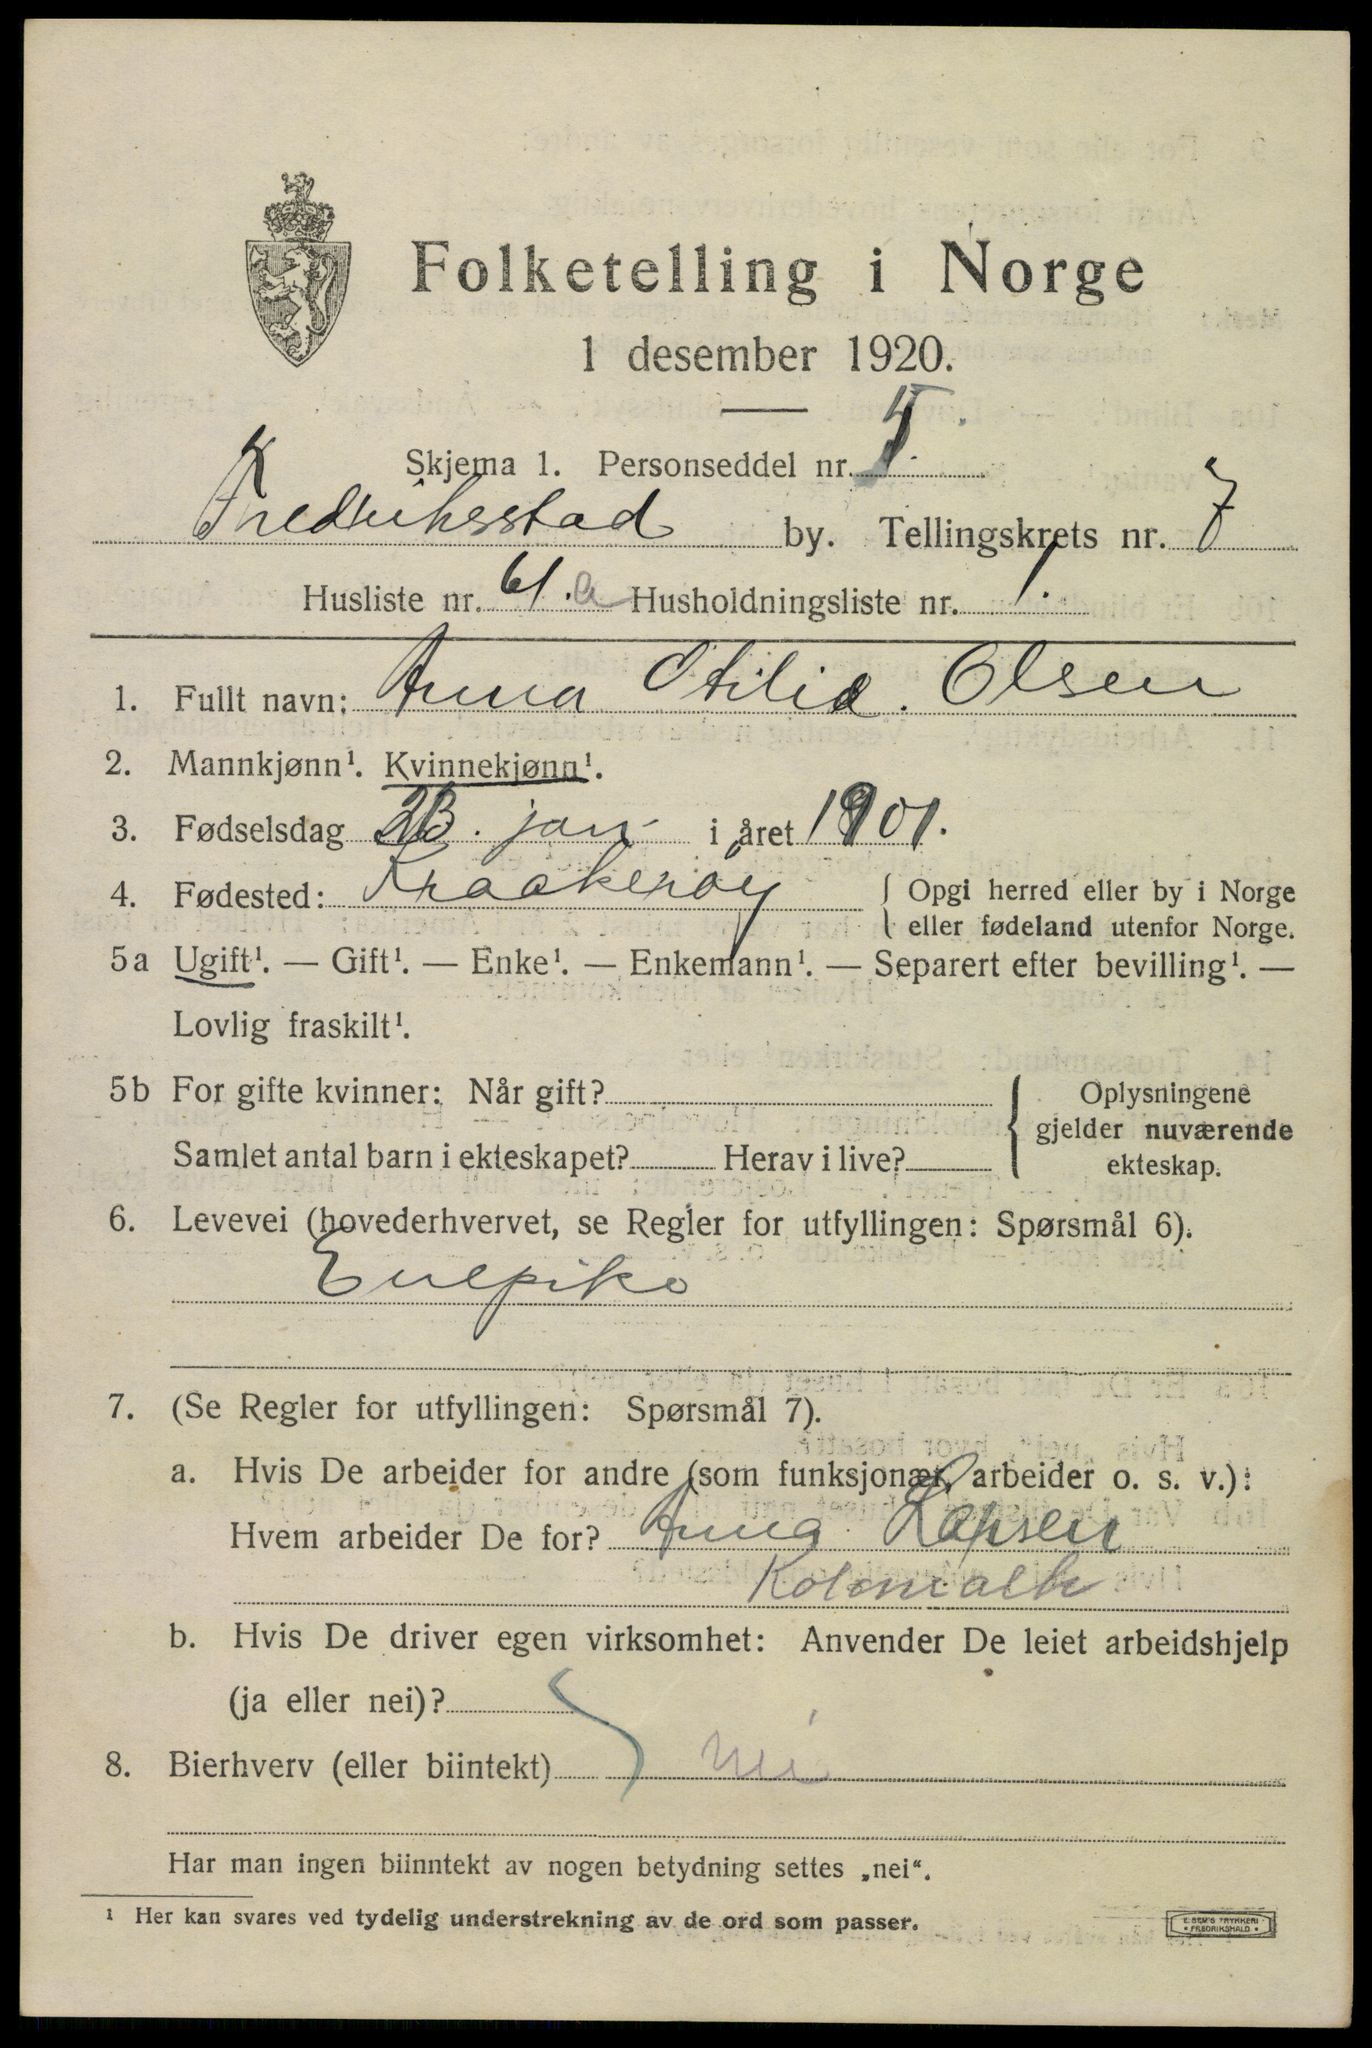 Folketelling i Norge
1 desember 1920.
Skjema 1. Personseddel nr.
Fredriksstad by. Tellingskrets nr. 7
Husliste nr. 61.a Husholdningsliste nr. 1.
1. Fullt navn: Anna Otilie. Olsen
2. Mannkjønn¹. Kvinnekjønn¹.
3. Fødselsdag 23. jan i året 1901.
4. Fødested: Kraakerøy { Opgi herred eller by i Norge
eller fødeland utenfor Norge.
5a Ugift¹. — Gift¹. — Enke¹. — Enkemann¹. — Separert efter bevilling¹. —
Lovlig fraskilt¹.
5b For gifte kvinner: Når gift? { Oplysningene
gjelder nuværende
Samlet antal barn i ekteskapet? Herav i live? ekteskap.
6. Levevei (hovederhvervet, se Regler for utfyllingen: Spørsmål 6).
7. (Se Regler for utfyllingen: Spørsmål 7).
a. Hvis De arbeider for andre (som funksjonær, arbeider o. s. v.):
Hvem arbeider De for? Anna Larsen
Kolonialh
b. Hvis De driver egen virksomhet: Anvender De leiet arbeidshjelp
(ja eller nei)?
8. Bierhverv (eller biintekt) nei
Har man ingen biinntekt av nogen betydning settes „nei“.
¹ Her kan svares ved tydelig understrekning av de ord som passer.
E. SEM'S TRYKKERI
FREDRIKSHALD